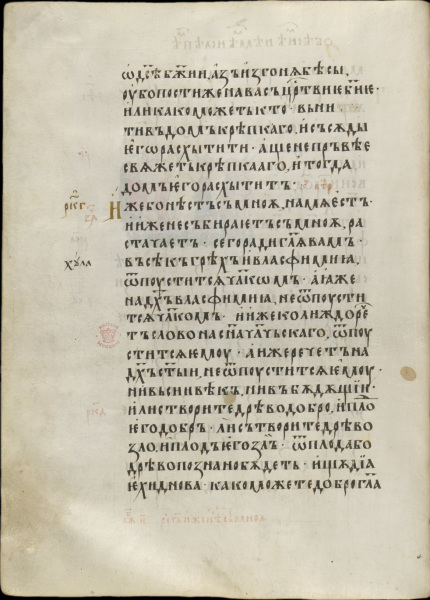 ѡ дс҃ѣ бж҃ии, азъ изгонѧ бѣсы,
оубо постиже на вас цр҃твие бж҃ие ·
или како можетъ кто вьни
ти въ домъ крѣпкаго, и съсѫды
его расхытити · аще не пръвѣе
свѧжетъ крѣпкааго, и тогда
домъ его расхытитъ ·
рк҃г
Иже бо нѣстъ съ мноѫ, на мѧ естъ ·
и иже не събираетъ съ мноѫ, ра
стачаетъ · сего ради гл҃ѧ вамъ ·
хула
въсѣкъ грѣхъ и власфимиꙗ,
ѿпоустит сѧ чл҃комъ · а ꙗже
на дх҃ъ власфимиꙗ, не ѿпоусти
т сѧ чл҃комъ · и иже колиждо рⷱ҇е
тъ слово на сн҃а чл҃чьскаго, ѿпоу
стит сѧ емоу · а иже речетъ на
дх҃ъ ст҃ыи, не ѿпоустит сѧ емоу ·
ни вь сии вѣкъ, ни въ бѫдѫщіи ·
или створите дрѣво добро, и пло
его добръ · ли сътворите дрѣво
зло, и плодъ его зълъ · ѿ плода бо
дрѣво познано бѫдетъ · ищѧдіа
ехиднова · како можете добро гл҃а